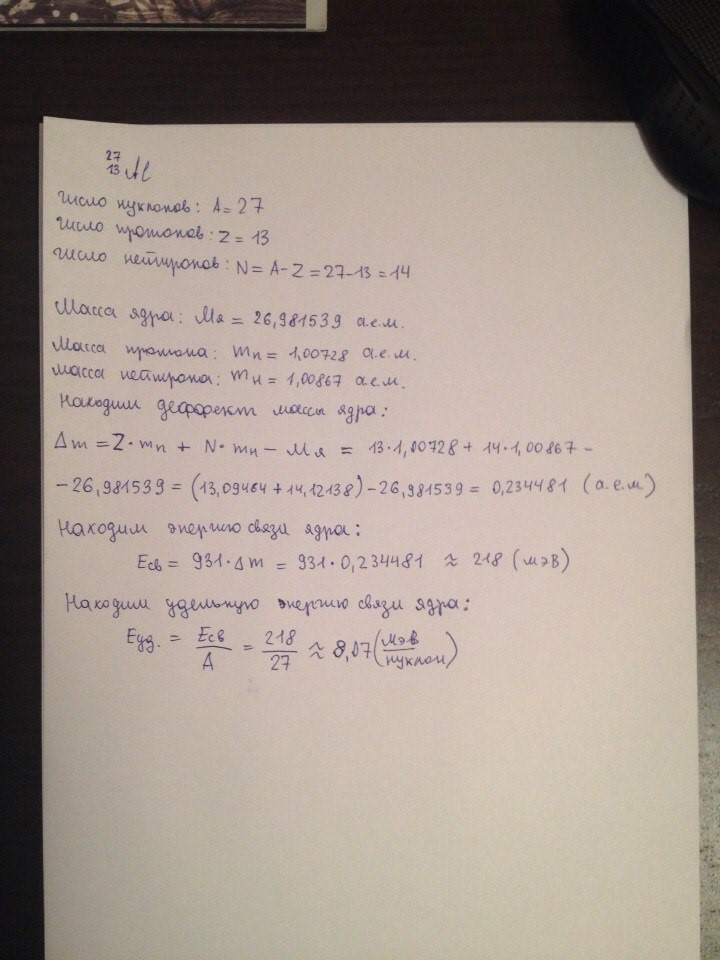 27
13 Al
Число нуклонов: A = 27
Число протонов: Z = 13
Число нейтронов: N = A - Z = 27-13 = 14
Масса ядра: Mя = 26,981539 а.е.м.
Масса протона: mп = 1,00728 а.е.м.
масса нейтрона: mн = 1,00867 а.е.м.
Находим деффект массы ядра:
Δm = Z·mп + N·mн - Mя = 13·1,00728 + 14·1,00867 -
-26,981539 = (13,09464 + 14,12138) - 26,981539 = 0,234481 (а.е.м)
Находим энергию связи ядра:
Eсв = 931·Δm = 931·0,234481 ≈ 218 (мэВ)
Находим удельную энергию связи ядра:
Eуд. = Eсв/A = 218/27 ≈ 8,07 (мэВ/нуклон)